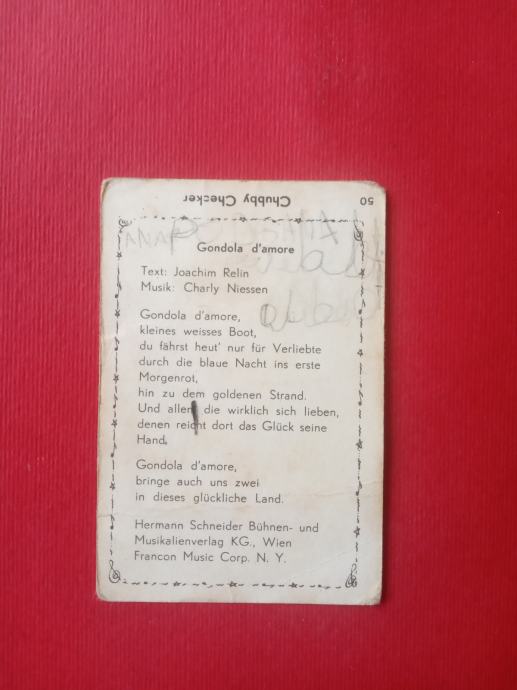 50
Chubby Checker
ANNA
Gondola d'amore
Text: Joachim Relin
Musik: Charly Niessen
Gondola d'amore,
kleines weisses Boot,
du fährst heut' nur für Verliebte
durch die blaue Nacht ins erste
Morgenrot,
hin zu dem goldenen Strand.
Und allen die wirklich sich lieben,
denen reicht dort das Glück seine
Hand.
Gondola d'amore,
bringe auch uns zwei
in dieses glückliche Land.
Hermann Schneider Bühnen- und
Musikalienverlag KG., Wien
Francon Music Corp. N. Y.